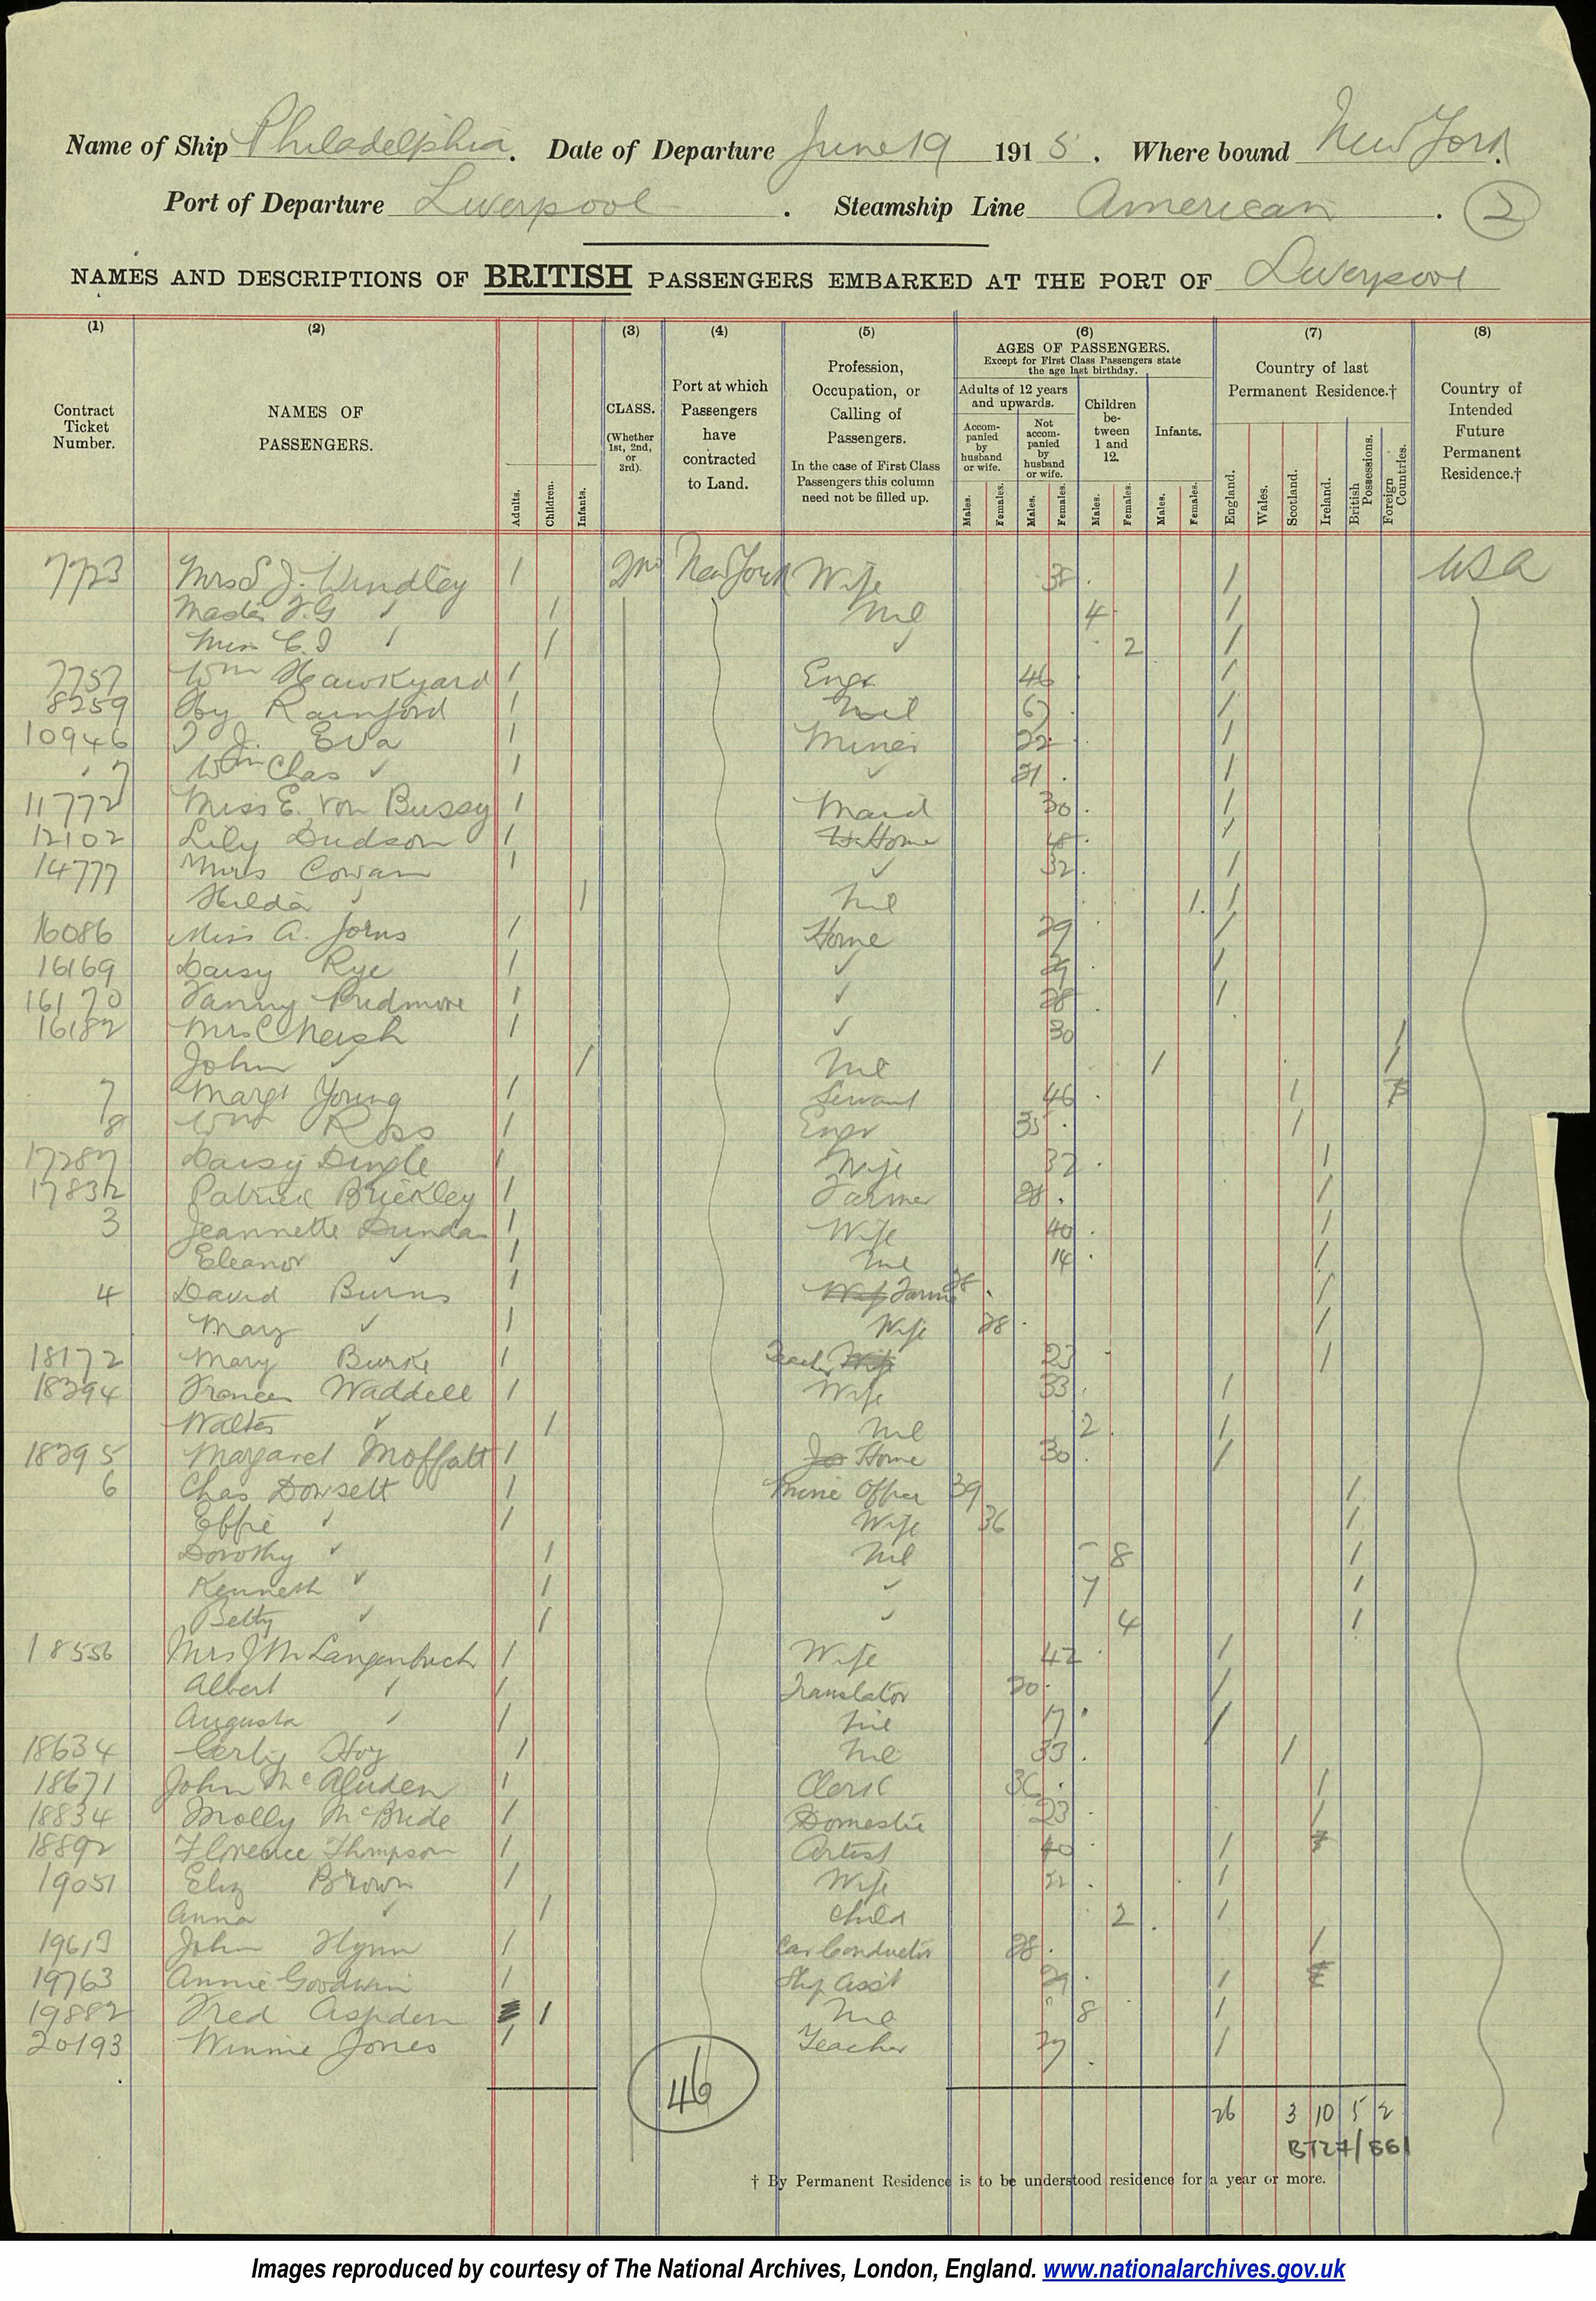 Name of Ship Philadelphia. Date of Departure June 19 1915. Where bound New York.
Port of Departure Liverpool. Steamship Line American. 2
NAMES AND DESCRIPTIONS OF BRITISH PASSENGERS EMBARKED AT THE PORT OF Liverpool
(1) (2) (3) (4) (5) (6) (7) (8)
Contract Ticket Number.
NAMES OF PASSENGERS.
Adults. Children. Infants.
CLASS. (Whether 1st, 2nd, or 3rd).
Port at which Passengers have contracted to Land.
Profession, Occupation, or Calling of Passengers. In the case of First Class Passengers this column need not be filled up.
AGES OF PASSENGERS. Except for First Class Passengers state the age last birthday.
Adults of 12 years and upwards. Accompanied by husband or wife. Not accompanied by husband or wife. Children between 1 and 12. Infants.
Males. Females. Males. Females. Males. Females. Males. Females.
Country of last Permanent Residence.†
England. Wales. Scotland. Ireland. British Possessions. Foreign Countries.
Country of Intended Future Permanent Residence.†
7723 Mrs S J. Windley 1 2nd New York Wife 38 1 USA
Master F.G ✓ 1 Nil 4 1
Miss C.I ✓ 1 ✓ 2 1
7757 Wm Hawkyard 1 Engr 46 1
8259 Hy Rainford 1 Nil 67 1
10946 T J. Eva 1 Miner 22 1
7 Wm Chas ✓ 1 ✓ 21 1
11772 Miss E. von Bussy 1 Maid 30 1
12102 Lily Dudson 1 Home 48 1
14777 Mrs Cowan 1 ✓ 32 1
Hilda ✓ 1 Nil 1 1
16086 Miss A. Jorns 1 Home 29 1
16169 Daisy Rye 1 ✓ 29 1
16170 Fanny Pridmore 1 ✓ 28 1
16182 Mrs C Neish 1 ✓ 30 1
John ✓ 1 Nil 1 1
7 Margt Young 1 Servant 46 1
8 Wm Ross 1 Engr 35 1
17287 Daisy Dingle 1 Wife 32 1
17832 Patrick Brickley 1 Farmer 28 1
3 Jeannette Dundas 1 Wife 40 1
Eleanor ✓ 1 Nil 14 1
4 David Burns 1 Wife Farmer 28 1
Mary ✓ 1 Wife 28 1
18172 Mary Burke 1 Teacher Wife 23 1
18294 Frances Waddell 1 Wife 33 1
Walter ✓ 1 Nil 2 1
18295 Margaret Moffatt 1 Home 30 1
6 Chas Dowsett 1 Mine Officer 39 1
Effie ✓ 1 Wife 36 1
Dorothy ✓ 1 Nil 8 1
Kenneth ✓ 1 ✓ 7 1
Betty ✓ 1 ✓ 4 1
18556 Mrs J M Langenbach 1 Wife 42 1
Albert ✓ 1 Translator 20 1
Augusta ✓ 1 Nil 17 1
18634 Hoy 1 Nil 33 1
18671 John 1 Clerk 36 1
18834 Molly McBride 1 Domestic 23 1
18892 Florence Thompson 1 Artist 40 1
19051 Eliz Brown 1 Wife 32 1
Anna ✓ 1 Child 2 1
19613 John Flynn 1 Car Conductor 28 1
19763 Annie Goodwin 1 Shop Asst 29 1
19882 Fred Aspden 1 Nil 8 1
20193 Winnie Jones 1 Teacher 27 1
46
26 3 10 5 2
BT27/861
† By Permanent Residence is to be understood residence for a year or more.
Images reproduced by courtesy of The National Archives, London, England. www.nationalarchives.gov.uk